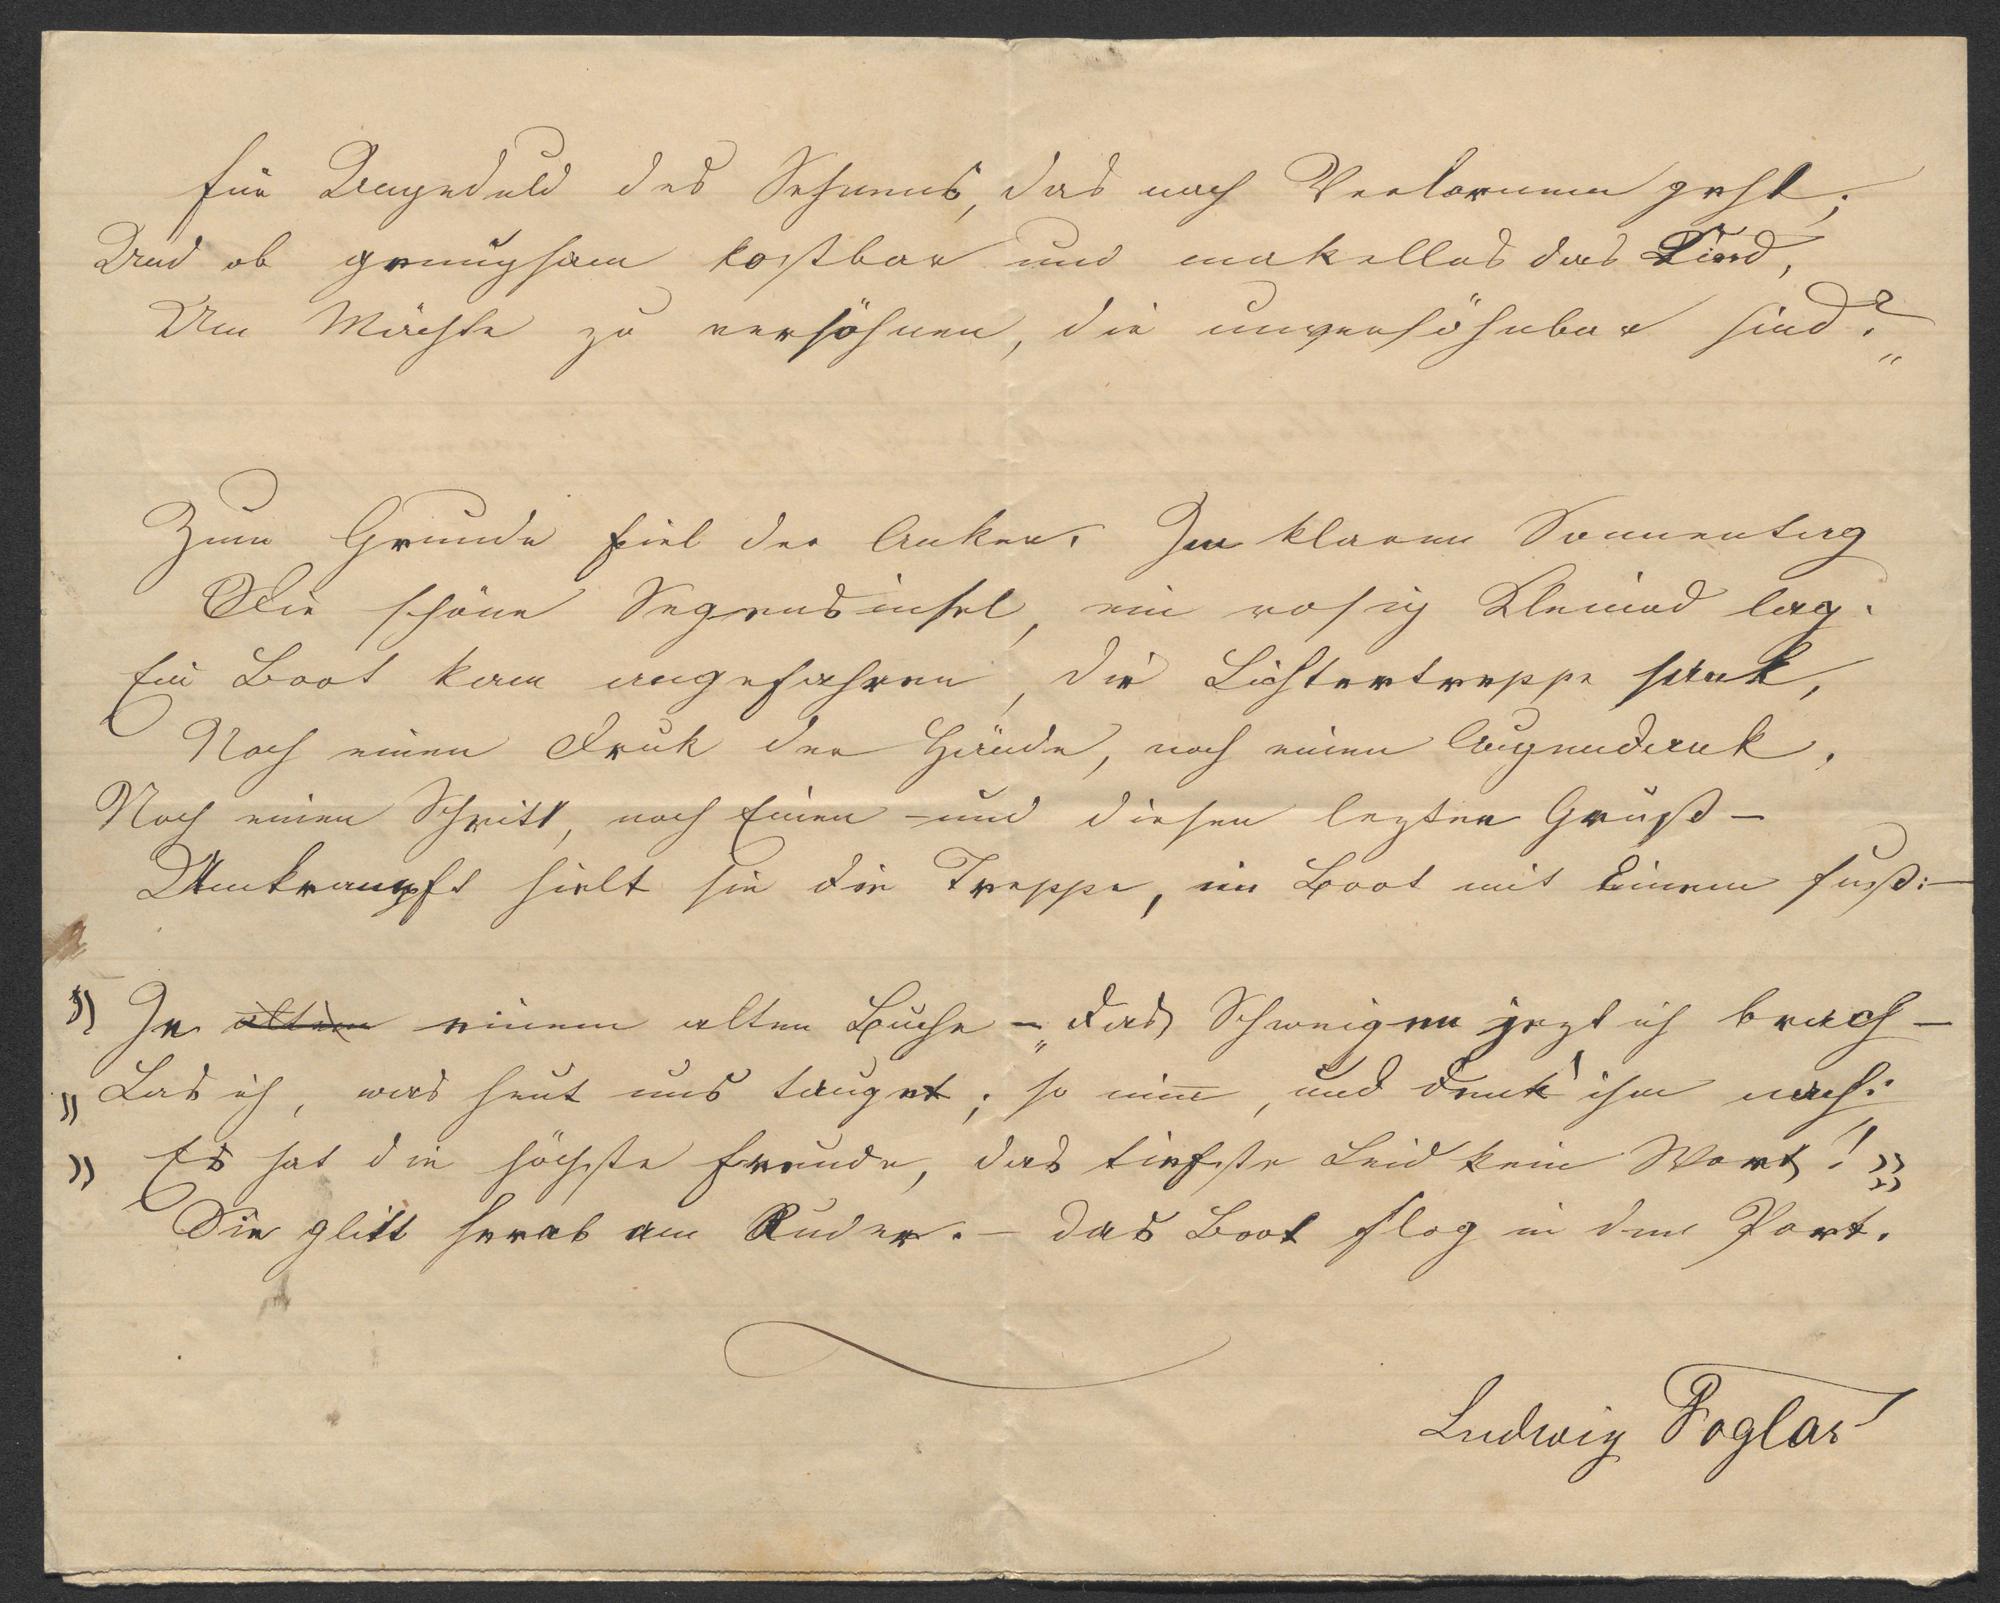 Für Ungeduld des Sehnens, das nach Verlornem geht;
Und ob genugsam kostbar und makellos das Kind,
Um Mächte zu versöhnen, die unversöhnbar sind?"
Zum Grunde fiel der Anker. Im klaren Sonnentag
Die schöne Segensinsel, ein rosig Kleinod lag.
Ein Boot kam angefahren, die Lichtertreppe sank,
Noch einen Druk der Hände, noch einen
Noch einen Schritt, noch Einen – und diesen lezten Gruß –
Umkrampft hielt sie die Treppe, im Boot mit Einem Fuß: –
"In altem einem alten Buche – "das Schweigen jezt ich brach –
"Las ich, was heut uns tauget; so nim̅, und denk' ihm nach:
"Es hat die höchste Freude, das tiefste Leid kein Wort!""
Sie glitt herab am Ruder. – das Boot flog in den Port.
Ludwig Foglar